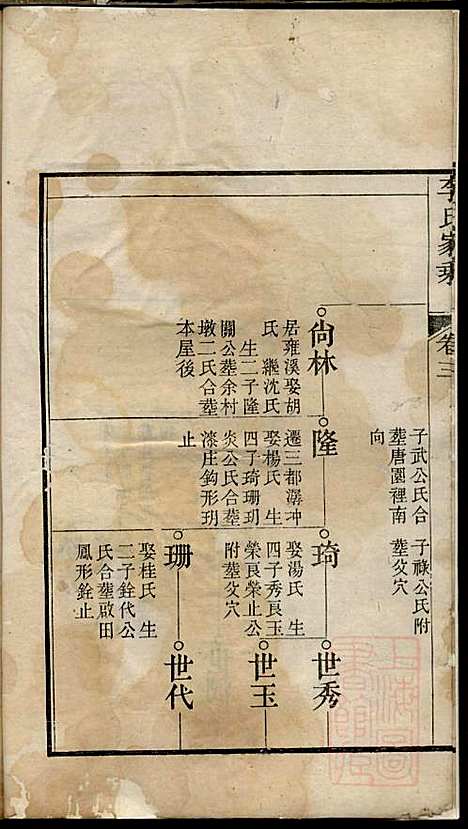 李氏家乘
卷三
子武公氏合
塟唐園裡南
向
子祿公氏附
塟父穴
尙林
居雍溪娶胡
氏 繼沈氏
生二子隆
關公塟余村
墩二氏合塟
本屋後
隆
遷三都潺坤
娶楊氏 生
四子琦珊玥
炎公氏合塟
漆庄鈎形玥
止
琦
娶湯氏 生
四子秀良玉
榮良榮止公
附塟父穴
珊
娶桂氏 生
二子銓代公
氏合塟啟田
鳳形銓止
世秀
世玉
世代
上海圖書館藏